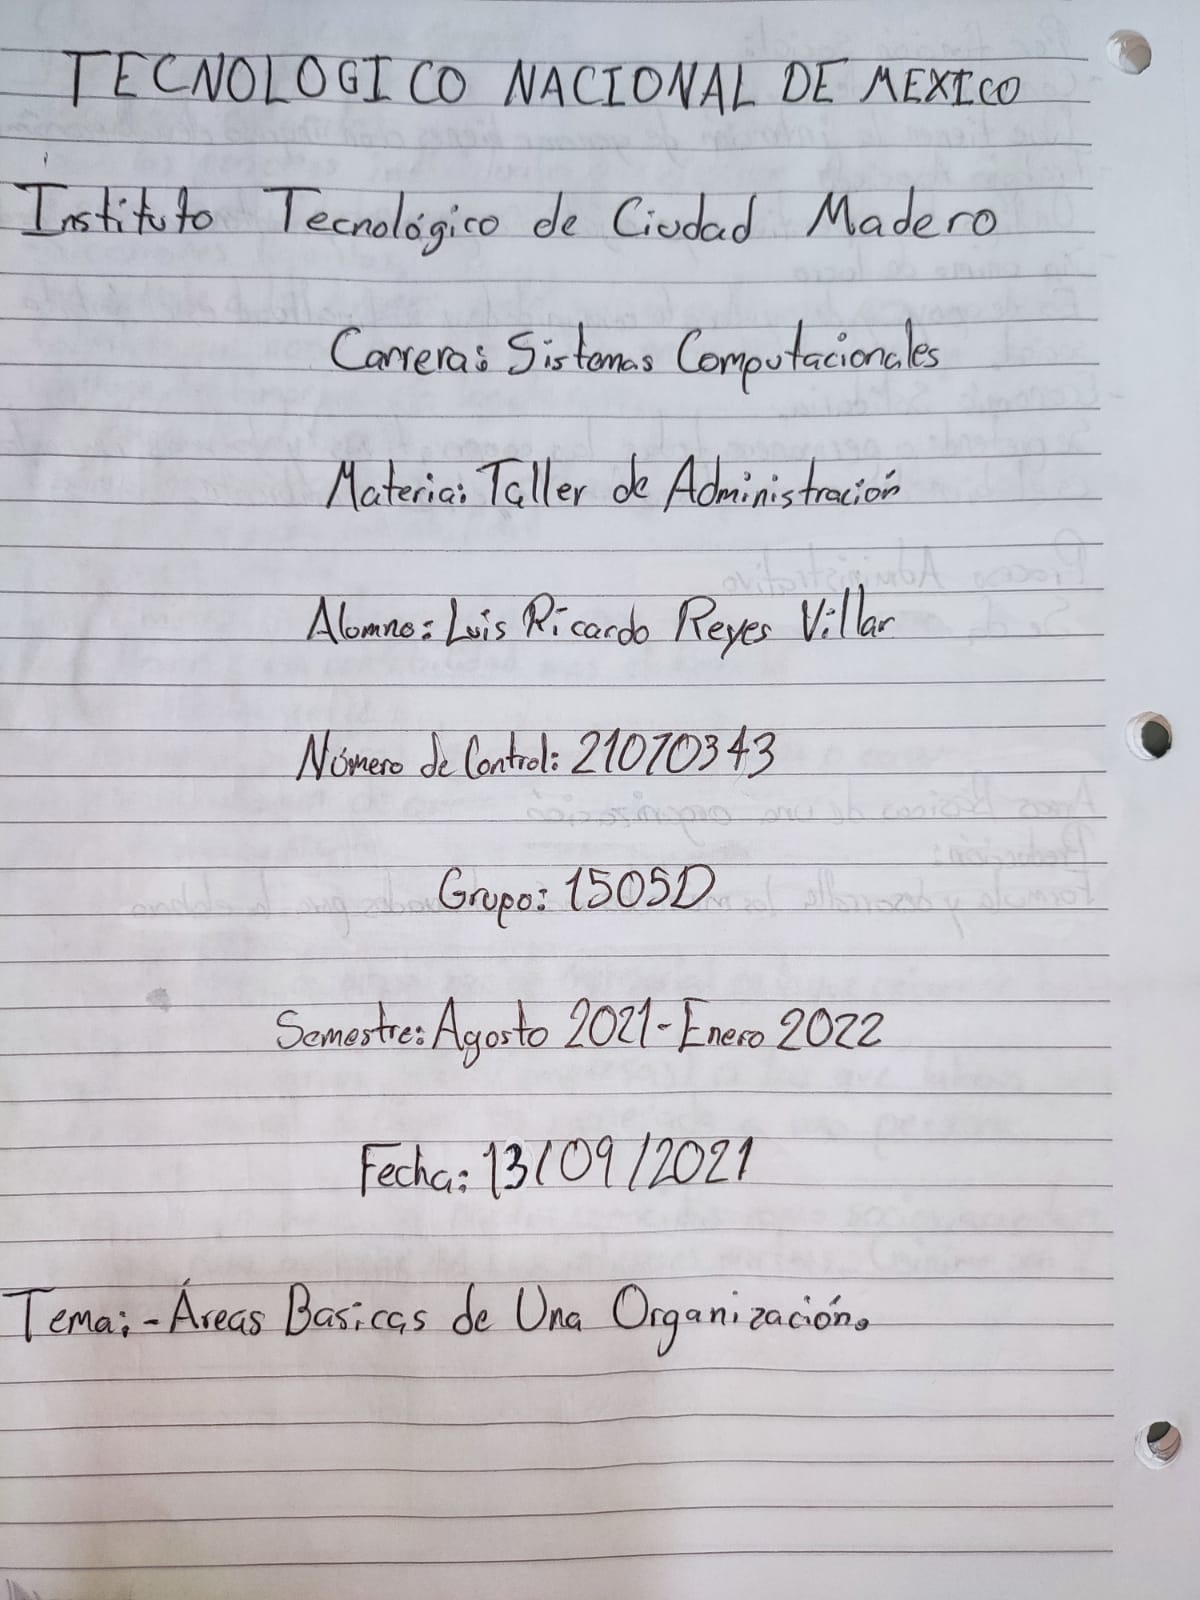 TECNOLOGICO NACIONAL DE MEXICO
Instituto Tecnológico de Ciudad Madero
Carrera: Sistemas Computacionales
Materia: Taller de Administración
Alumno: Luis Ricardo Reyes Villar
Número de Control: 21070343
Grupo: 1505D
Semestre: Agosto 2021-Enero 2022
Fecha: 13/09/2021
Tema: -Áreas Basicas de Una Organización.